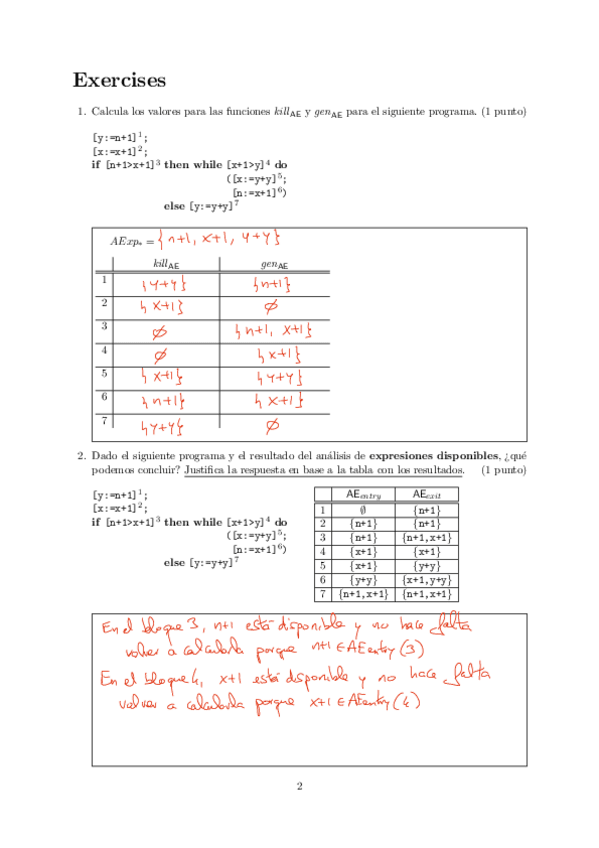 Exercises
1. Calcula los valores para las funciones kill_AE y gen_AE para el siguiente programa. (1 punto)
[y:=n+1]^1;
[x:=x+1]^2;
if [n+1>x+1]^3 then while [x+1>y]^4 do
([x:=y+y]^5;
[n:=x+1]^6)
else [y:=y+y]^7
AExp* = {n+1, x+1, y+y}
kill_AE gen_AE
1 {y+y} {n+1}
2 {x+1} ∅
3 ∅ {n+1, x+1}
4 ∅ {x+1}
5 {x+1} {y+y}
6 {n+1} {x+1}
7 {y+y} ∅
2. Dado el siguiente programa y el resultado del análisis de expresiones disponibles, ¿qué
podemos concluir? Justifica la respuesta en base a la tabla con los resultados. (1 punto)
[y:=n+1]^1;
[x:=x+1]^2;
if [n+1>x+1]^3 then while [x+1>y]^4 do
([x:=y+y]^5;
[n:=x+1]^6)
else [y:=y+y]^7
AE_entry AE_exit
1 ∅ {n+1}
2 {n+1} {n+1}
3 {n+1} {n+1,x+1}
4 {x+1} {x+1}
5 {x+1} {y+y}
6 {y+y} {x+1,y+y}
7 {n+1,x+1} {n+1,x+1}
En el bloque 3, n+1 está disponible y no hace falta
volver a calcularla porque n+1 ∈ AEentry(3)
En el bloque 4, x+1 está disponible y no hace falta
volver a calcularla porque x+1 ∈ AEentry(4)
2